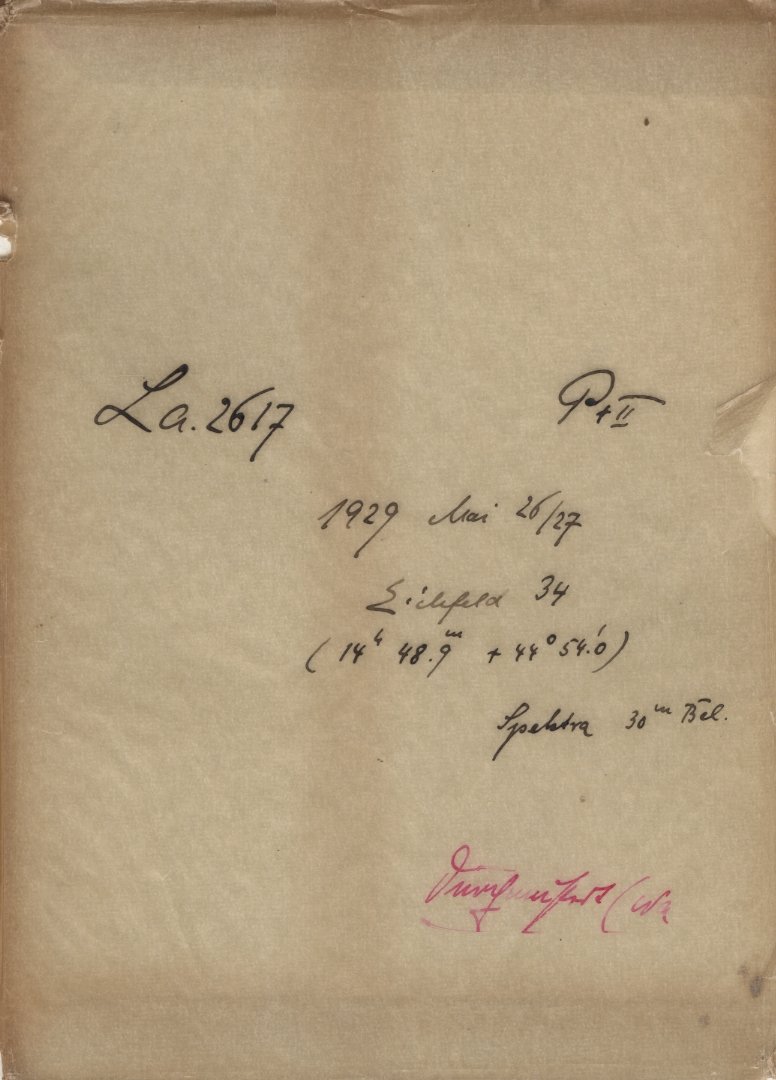 La. 2617 P+II
1929 Mai 26/27
Eichfeld 34
(14ʰ 48.9ᵐ + 44° 54.'0)
Spektra 30ᵐ Bel.
Durchgemustert (